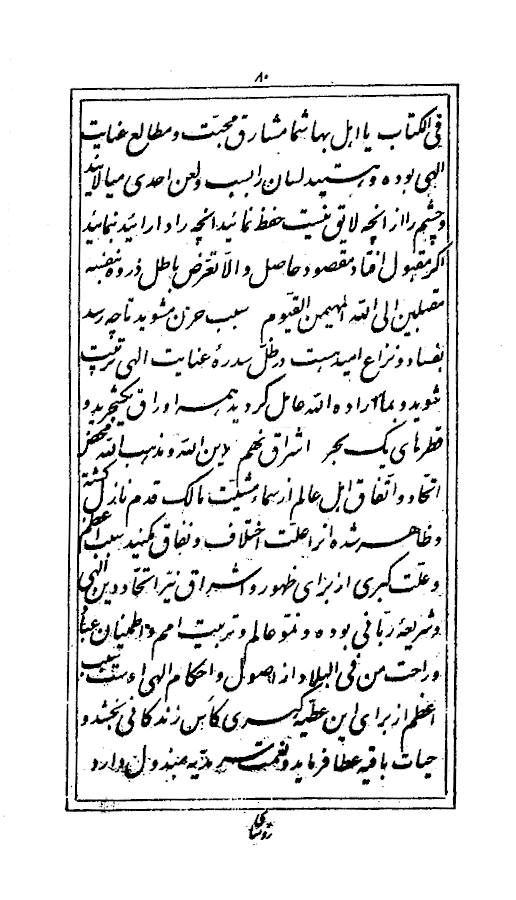 ٨٠
فی الکتاب یا اهل بها شما مشارق محبّت و مطالع عنایت
الهی بوده و هستید لسان را بسب و لعن احدی میالائید
و چشم را از آنچه لایق نیست حفظ نمائید آنچه را دارائید بنمائید
اگر مقبول افتاد مقصود حاصل و الّا تعرّض باطل ذروه بنفسه
مقبلین الی الله المهیمن القیّوم سبب حزن مشوید تا چه رسد
بفساد و نزاع امید هست در ظلّ سدرهٔ عنایت الهی تربیت
شوید و بما اراده الله عامل گردید همه اوراق یکشجرید و
قطرهای یک بحر اشراق نهم دین الله و مذهب الله محض
اتّحاد و اتّفاق اهل عالم از سماء مشیّت مالک قدم نازل گشته
و ظاهر شده آنرا علّت اختلاف و نفاق مکنید سبب اعظم
و علّت کبری از برای ظهور و اشراق نیّر اتّحاد دین الهی
و شریعهٔ ربّانی بوده و نموّ عالم و تربیت امم و اطمینان عباد
و راحت من فی البلاد از اصول و احکام الهی اوست سبب
اعظم از برای این عطیّه کبری کأس زندگانی بخشد و
حیات باقیه عطا فرماید و نعمت سرمدیّه مبذول دارد